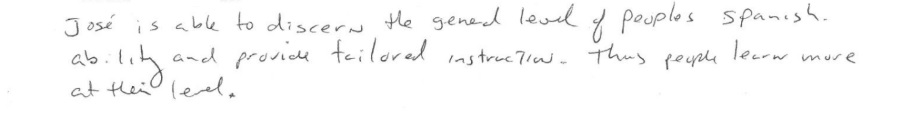 José is able to discern the general level of peoples spanish.
ability and provide tailored instruction. Thus people learn more
at their level.